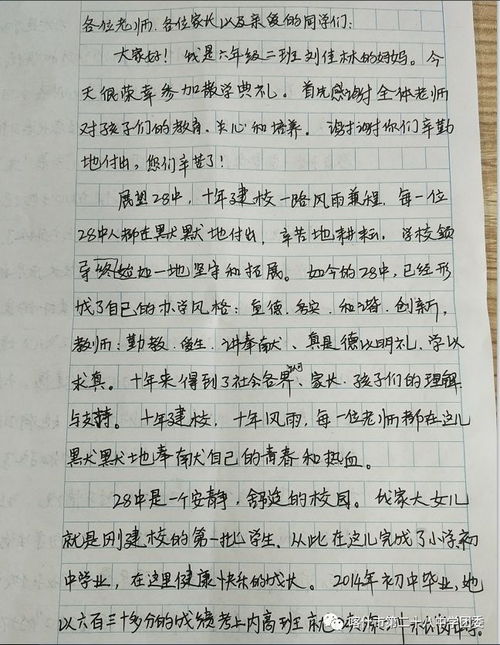 各位老师、各位家长以及亲爱的同学们:
大家好!我是六年级二班刘佳林的妈妈。今
天很荣幸参加散学典礼。首先感谢全体老师
对孩子们的教育、关心和培养。谢谢你们辛勤
地付出,您们辛苦了!
展望28中,十年建校一路风雨兼程,每一位
28中人都在默默地付出,辛苦地耕耘,学校领
导终始如一地坚守和拓展。如今的28中,已经形
成了自己的办学风格:重德、务实、和谐、创新,
教师:勤教、善生、讲奉献、真是德以明礼,学以
求真。十年来得到了社会各界、家长、孩子们的理解
与支持。十年建校,十年风雨,每一位老师都在这儿
默默地奉献自己的青春和热血。
28中是一个安静,舒适的校园。我家大女儿
就是刚建校的第一批学生,从此在这儿完成了小学初
中学业,在这里健康快乐的成长。2014年初中毕业,她
以六百三十多分的成绩考上内高班就
喀什市第二十八中学团委